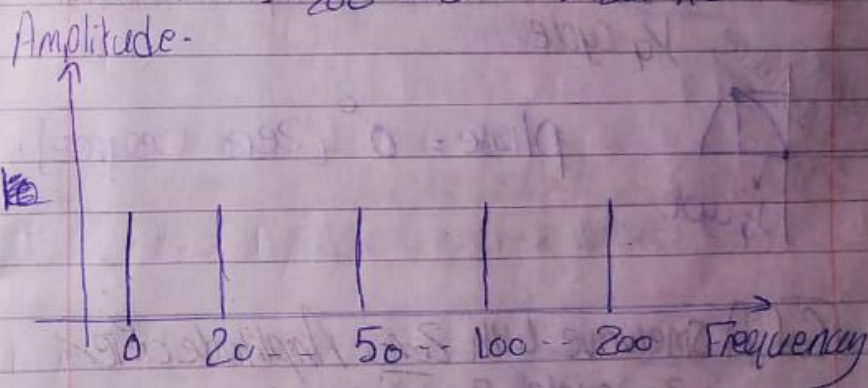 200
Amplitude.
0 20 -- 50 -- 100 -- 200 Frequency